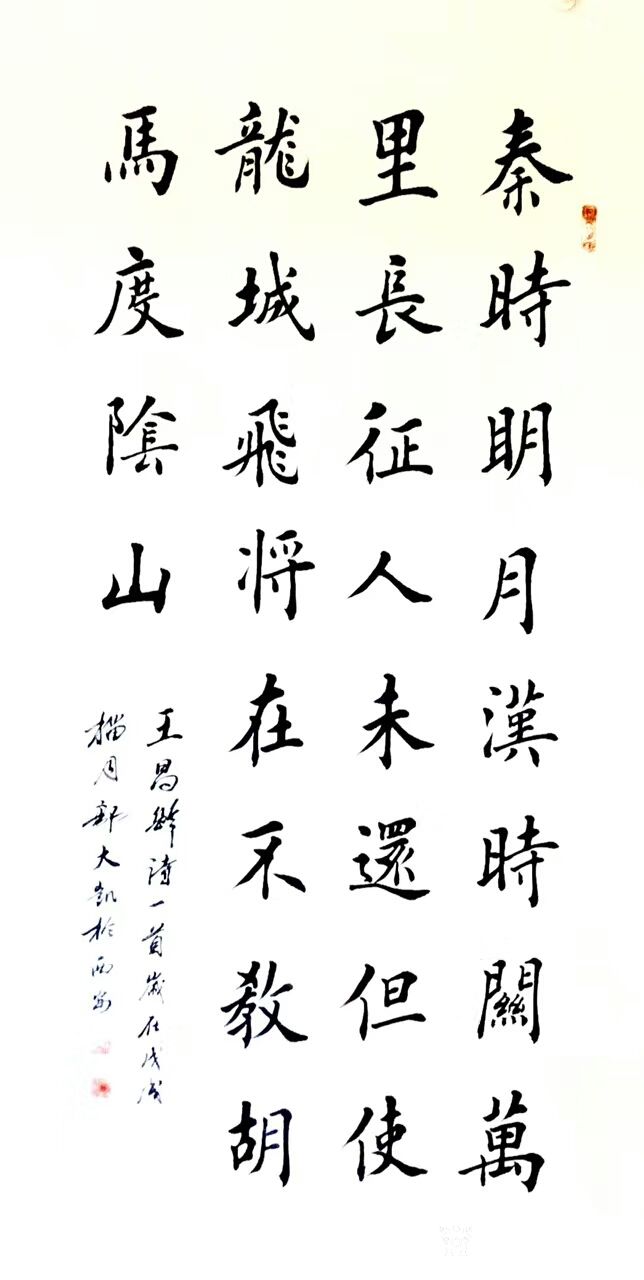 秦時眀月漢時關萬
里長征人未還但使
龍城飛将在不教胡
馬度陰山
王昌齡詩一首歲在戊戌
腊月大凱於西安